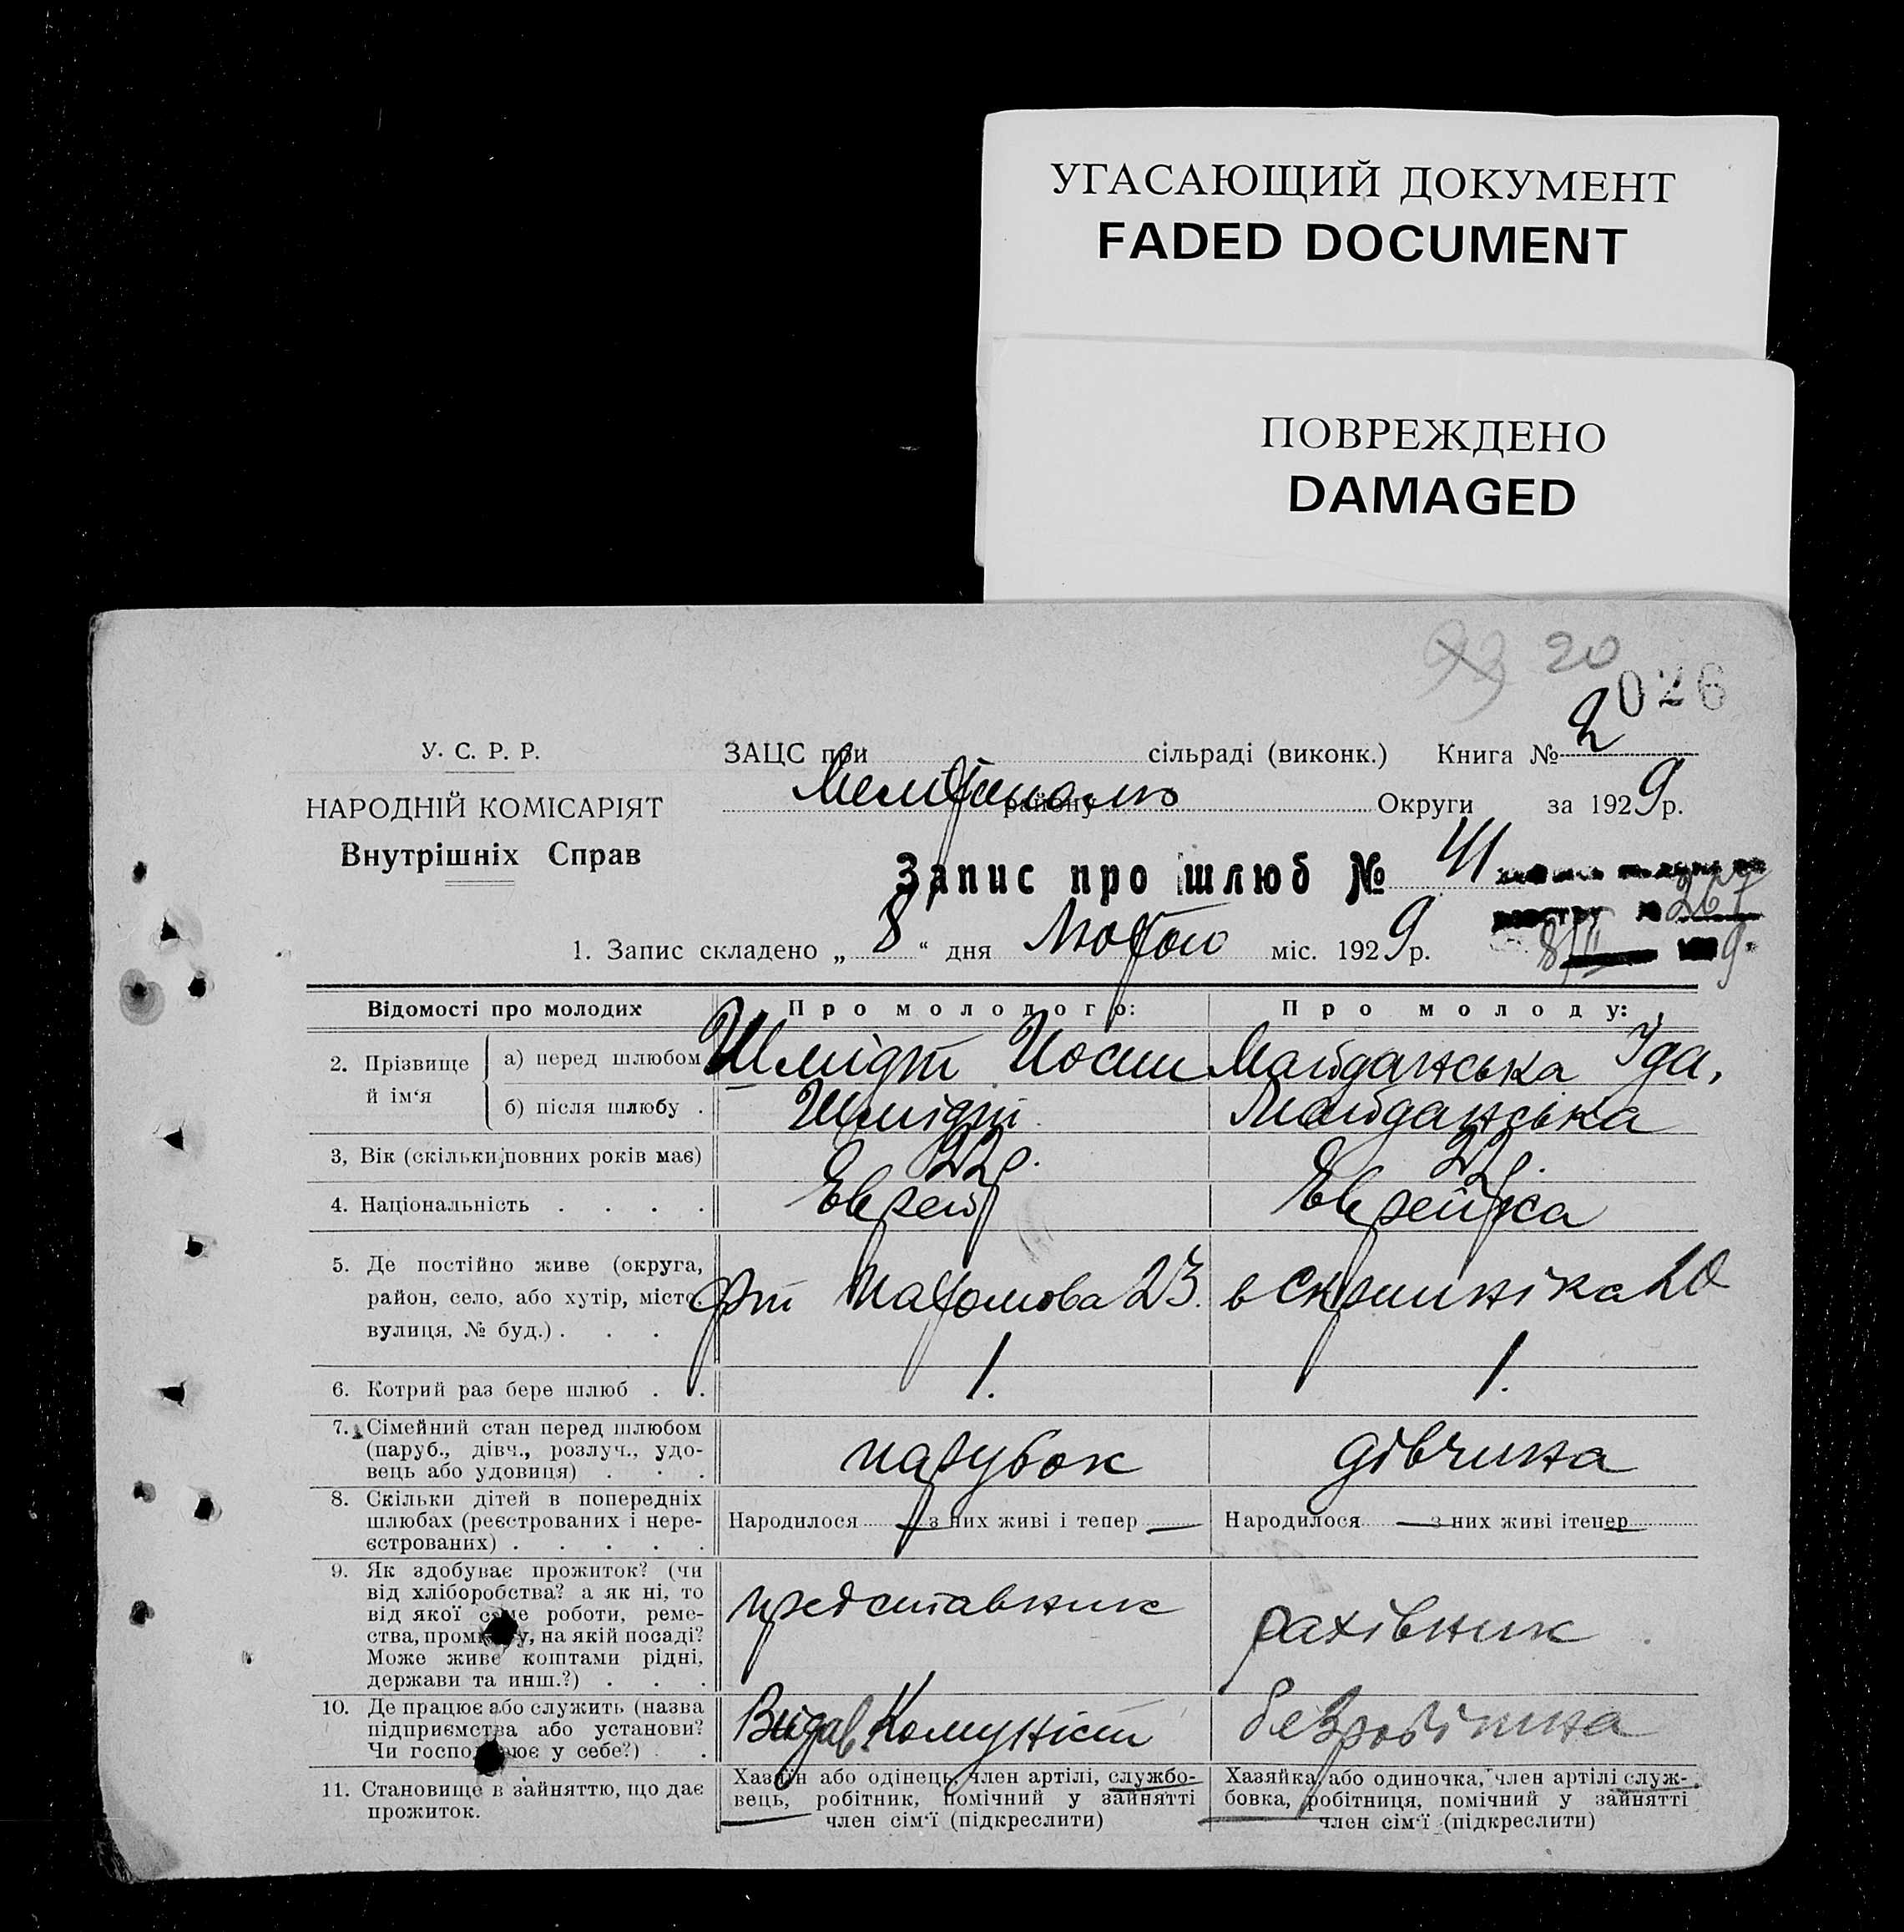 УГАСАЮЩИЙ ДОКУМЕНТ
FADED DOCUMENT
ПОВРЕЖДЕНО
DAMAGED
93 20
026
У. С. Р. Р.
НАРОДНІЙ КОМІСАРІЯТ
Внутрішніх Справ
ЗАЦС при сільраді (виконк.) Книга № 2
району Округи за 1929 р.
Запис про шлюб № 41
267
1. Запис складено „ 8 “ дня Лютого міс. 1929 р.
8/II 9.
Відомості про молодих
Про молодого:
Про молоду:
2. Прізвище й ім‘я
а) перед шлюбом
Шмідт Йосип
Майданська Іда,
б) після шлюбу .
Шмідт.
Майданська
3, Вік (скільки повних років має)
22 р.
22 р.
4. Національність . . . .
Еврей
Еврейка
5. Де постійно живе (округа,
район, село, або хутір, місто,
вулиця, № буд.) . . .
Пахомова 23.
Скрипніка 20
6. Котрий раз бере шлюб . .
1.
1.
7. Сімейний стан перед шлюбом
(паруб., дівч., розлуч., удо-
вець або удовиця) . . .
парубок
дівчина
8. Скільки дітей в попередніх
шлюбах (реєстрованих і нере-
єстрованих) . . . . .
Народилося — з них живі і тепер —
Народилося — з них живі ітепер —
9. Як здобуває прожиток? (чи
від хліборобства? а як ні, то
від якої саме роботи, реме-
ства, промислу, на якій посаді?
Може живе коштами рідні,
держави та инш.?) . . .
представник
рахівник
10. Де працює або служить (назва
підприємства або установи?
Чи господарює у себе?) . .
Видав. Комуніст
безробітна
11. Становище в зайняттю, що дає
прожиток.
Хазяїн або одінець, член артілі, службо-
вець, робітник, помічний у зайнятті
член сім‘ї (підкреслити)
Хазяйка, або одиночка, член артілі служ-
бовка, робітниця, помічний у зайнятті
член сім‘ї (підкреслити)